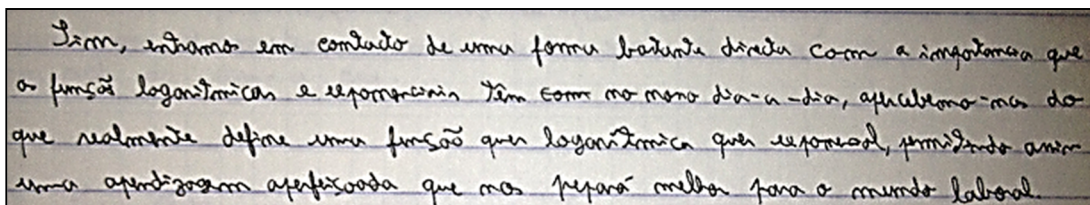 Sim, entramos em contacto de uma forma bastante directa com a importancia que
as função logaritmicas e exponenciais têm com no nosso dia-a-dia, apercebemo-nos do
que realmente define uma função quer logarítmica quer exponecial, permitindo assim
uma apendizagem aperfeiçoada que nos pepará melhor para o mundo laboral.